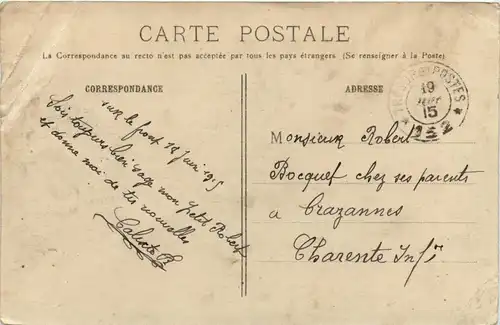 CARTE POSTALE
La Correspondance au recto n'est pas acceptée par tous les pays étrangers (Se renseigner à la Poste)
CORRESPONDANCE
sur le front 18 Juin 1915
Sois toujours bien sage mon petit Robert
et donne moi de tes nouvelles
ADRESSE
POSTES
19
15
152
Monsieur Robert
Bocquet chez ses parents
a Crazannes
Charente Infre